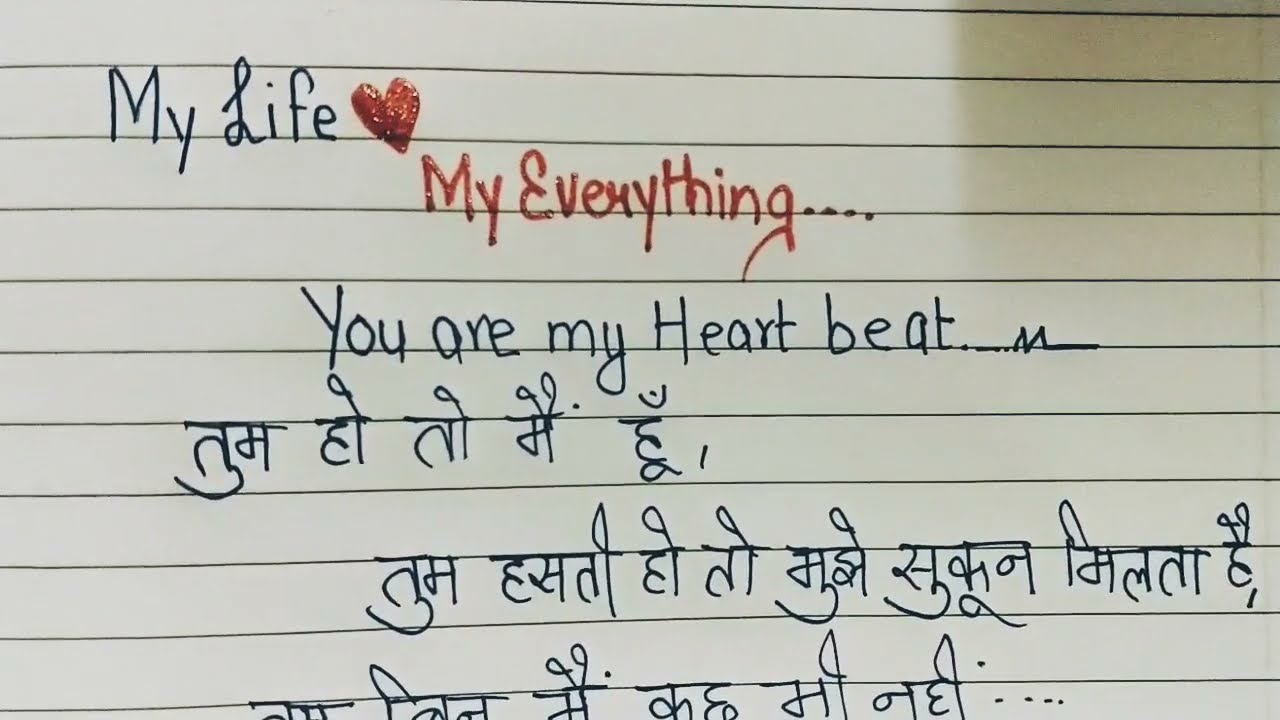 My Life ❤
My Everything....
You are my Heart beat....
तुम हो तो मैं हूँ,
तुम हसती हो तो मुझे सुकून मिलता है,
तुम बिन मैं कुछ भी नहीं....